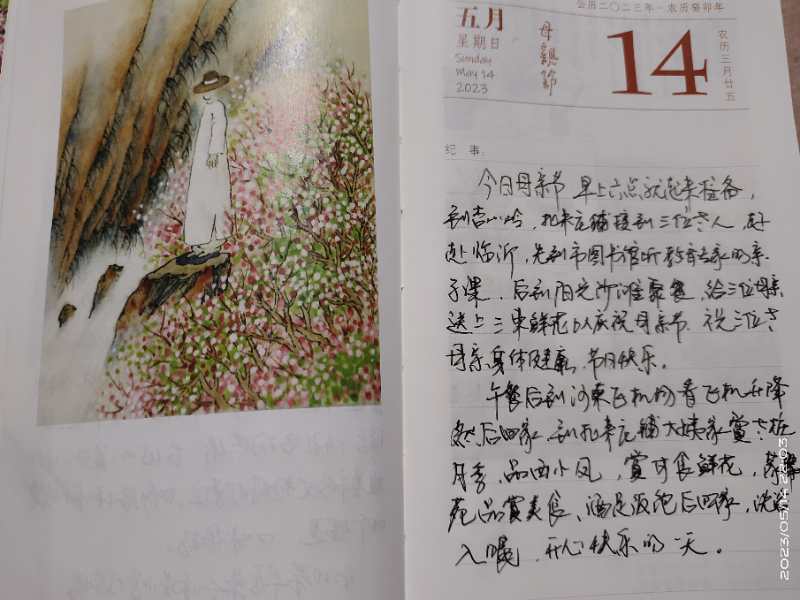 公历二〇二三年·农历癸卯年
五月
星期日
Sunday
May 14
2023
母親節
14
农历三月廿五
纪 事:
今日母亲节 早上六点就起来准备,
接到三位老人,赶
赴临沂,先到市图书馆听教育专家的亲
子课,后到阳光沙滩聚餐,给三位母亲
送上三束鲜花以庆祝母亲节.祝三位老
母亲身体健康,节日快乐。
午餐后到河东飞机场看飞机升降
然后回家,到 大姨家赏老桩
月季,品西小凤,赏可食鲜花,
苑品赏美食、酒足饭饱后回家,洗浴
入眠,开心快乐的一天。
2023/05/14 22:03